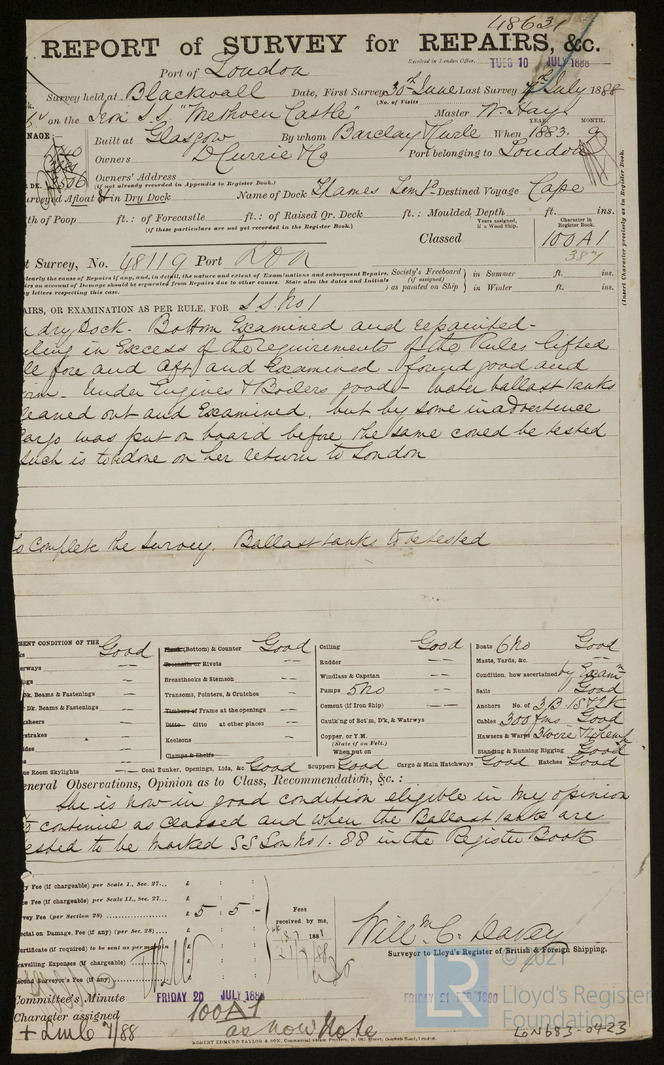 48631
REPORT of SURVEY for REPAIRS, &c.
Received in London Office, TUES 10 JULY 1888
Port of London
Survey held at Blackwall Date, First Survey 30th June Last Survey 4th July 1888
(No. of Visits
on the Iron S.S. "Methven Castle" Master W. Hay
YEAR. MONTH.
NAGE Built at Glasgow By whom Barclay Curle When 1883. 9
Owners D Currie & Co Port belonging to London
Owners' Address
(if not already recorded in Appendix to Register Book.)
urveyed Afloat & in Dry Dock Name of Dock Thames Destined Voyage Cape
th of Poop ft.: of Forecastle ft.: of Raised Qr. Deck ft.: Moulded Depth ft. ins.
(if these particulars are not yet recorded in the Register Book.)
Years assigned, if a Wood Ship.
Character in Register Book.
Classed 100A1
387
(Insert Character precisely as in Register Book.
t Survey, No. 48119 Port Lon
learly the cause of Repairs if any, and, in detail, the nature and extent of Examinations and subsequent Repairs.
irs on account of Damage should be separated from Repairs due to other causes. State also the dates and Initials
y letters respecting this case.
Society's Freeboard (if assigned) as painted on Ship in Summer ft. ins.
in Winter ft. ins.
AIRS, OR EXAMINATION AS PER RULE, FOR S.S. No 1
dry Dock. Bottom Examined and repainted.
eiling in Excess of the requirements of the Rules lifted
fore and aft and Examined - found good and
Under Engines & Boilers good - water ballast tanks
leaned out and Examined, but by some inadvertence
argo was put on board before the same could be tested
such is to be done on her return to London
To complete the Survey. Ballast tanks to be tested
SENT CONDITION OF THE
Good
erways —
Dk. Beams & Fastenings —
r Dk. Beams & Fastenings —
ksheers —
rstrakes —
ides —
ne Room Skylights —
Plank (Bottom) & Counter Good
Treenails or Rivets —
Breasthooks & Stemson —
Transoms, Pointers, & Crutches —
Timbers of Frame at the openings —
Ditto ditto at other places —
Keelsons —
Clamps & Shelfs
Coal Bunker, Openings, Lids, &c. Good
Ceiling Good
Rudder —
Windlass & Capstan —
Pumps 5 No —
Cement (if Iron Ship) —
Caulk'ng of Bot'm, D'k, & Watrwys
Copper, or Y.M.
(State if on Felt.)
When put on
Scuppers Good Cargo & Main Hatchways Good Hatches Good
Boats 6 No Good
Masts, Yards, &c.
Condition, how ascertained by Examn
Sails Good
Anchors No. of 3 B. 1 S. & 1 K
Cables 300 fms Good
Hawsers & Warps
Standing & Running Rigging Good
eneral Observations, Opinion as to Class, Recommendation, &c.:
She is now in good condition eligible in my opinion
to continue as Classed and when the Ballast tanks are
tested to be marked SS Lon No 1. 88 in the Register Book
ry Fee (if chargeable) per Scale I., Sec. 27... £ : :
ce Fee (if chargeable) per Scale II., Sec. 27... £ : :
vey Fee (per Section 28) £ 5 : 5 : -
ecial on Damage, Fee (if any) (per Sec. 28) £ : :
ertificate (if required) to be sent as per margin £ : :
ravelling Expenses (if chargeable) £ : :
econd Surveyor's Fee (if any) £ : :
Fees received by me,
188
Willm. C. Davey
Surveyor to Lloyd's Register of British & Foreign Shipping.
Committee's Minute FRIDAY 20 JULY 1888
FRIDAY 21 FEB 1890
Character assigned 100A1
+ LMC 7/88 as now Note
ROBERT EDMUND TAYLOR & SON,
LR © 2021
Lloyd's Register
Foundation
LON683-0423